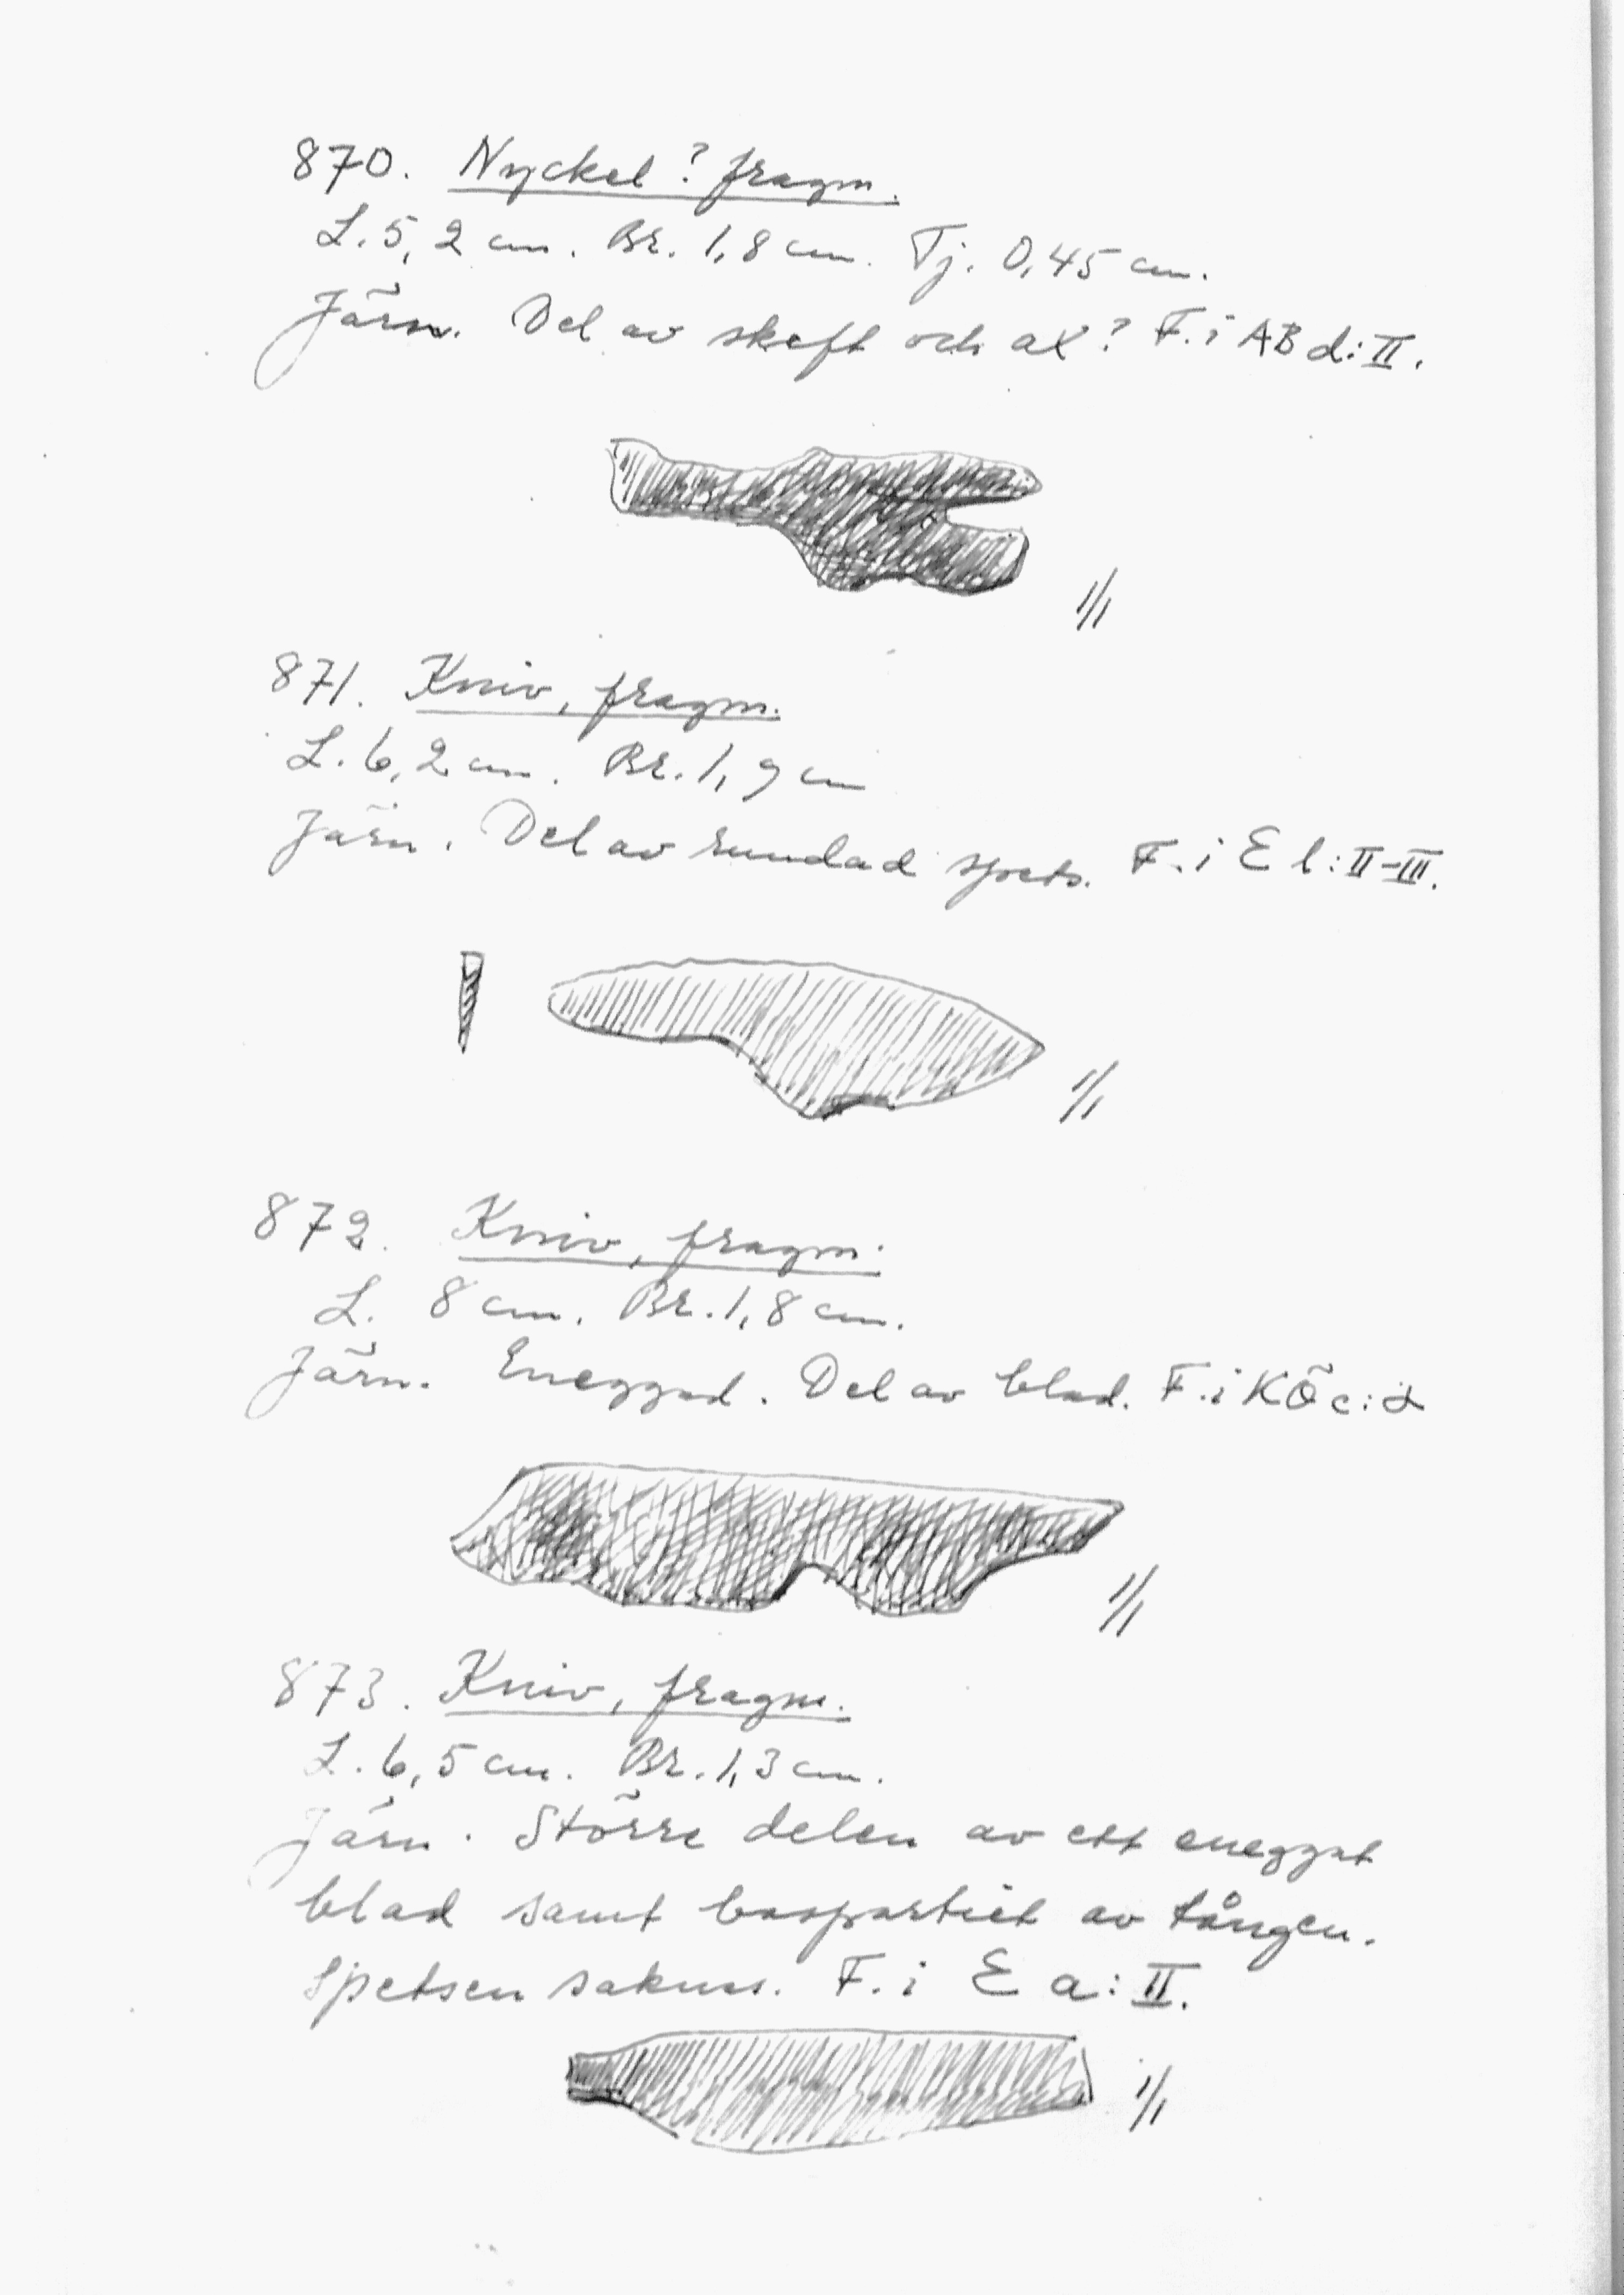 870. Nyckel? fragm.
L. 5,2 cm. Br. 1,8 cm. Tj. 0,45 cm.
Järn. Del av skaft och ax? F. i AB d: II.
1/1
871. Kniv, fragm.
L. 6,2 cm. Br. 1,9 cm
Järn. Del av rundad spets. F. i E l: II-III.
1/1
872. Kniv, fragm.
L. 8 cm. Br. 1,8 cm.
Järn. Eneggad. Del av blad. F. i KÖ c:
1/1
873. Kniv, fragm.
L. 6,5 cm. Br. 1,3 cm.
Järn. Större delen av ett eneggat
blad samt baspartiet av tången.
Spetsen saknas. F. i E a: II.
1/1